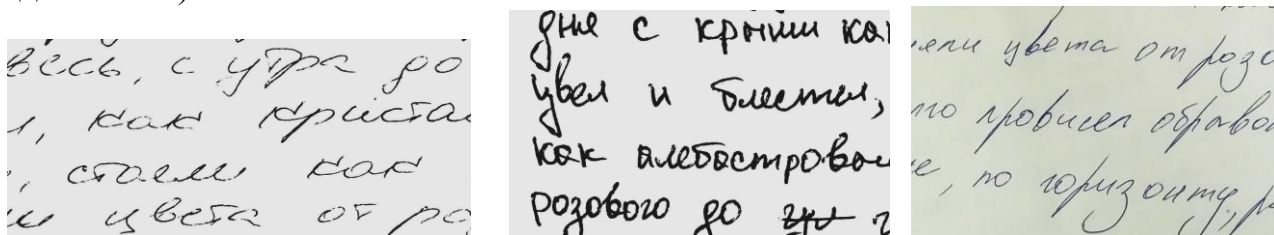 весь, с утра до
, как криста
, как
и цвета от ро
дня с крыши ка
цвел и блестел,
как алебастрован
розового до
яли цвета от розо
то провисел
е, по горизонту, р